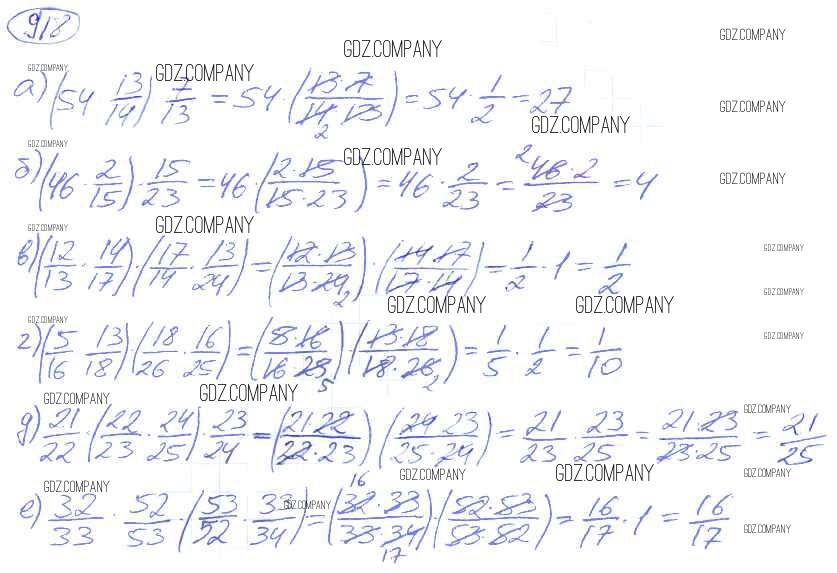 918
GDZ.COMPANY
а) (54 · 13/14) · 7/13 = 54 · (13·7/14·13) = 54 · 1/2 = 27
б) (46 · 2/15) · 15/23 = 46 · (2·15/15·23) = 46 · 2/23 = 46·2/23 = 4
в) (12/13 · 14/17) · (17/14 · 13/24) = (12·13/13·24) · (14·17/17·14) = 1/2 · 1 = 1/2
г) (5/16 · 13/18) (18/26 · 16/25) = (5·16/16·25) · (13·18/18·26) = 1/5 · 1/2 = 1/10
д) 21/22 · (22/23 · 24/25) · 23/24 = (21·22/22·23) (24·23/25·24) = 21/23 · 23/25 = 21·23/23·25 = 21/25
е) 32/33 · 52/53 · (53/52 · 33/34) = (32·33/33·34) · (52·53/53·52) = 16/17 · 1 = 16/17